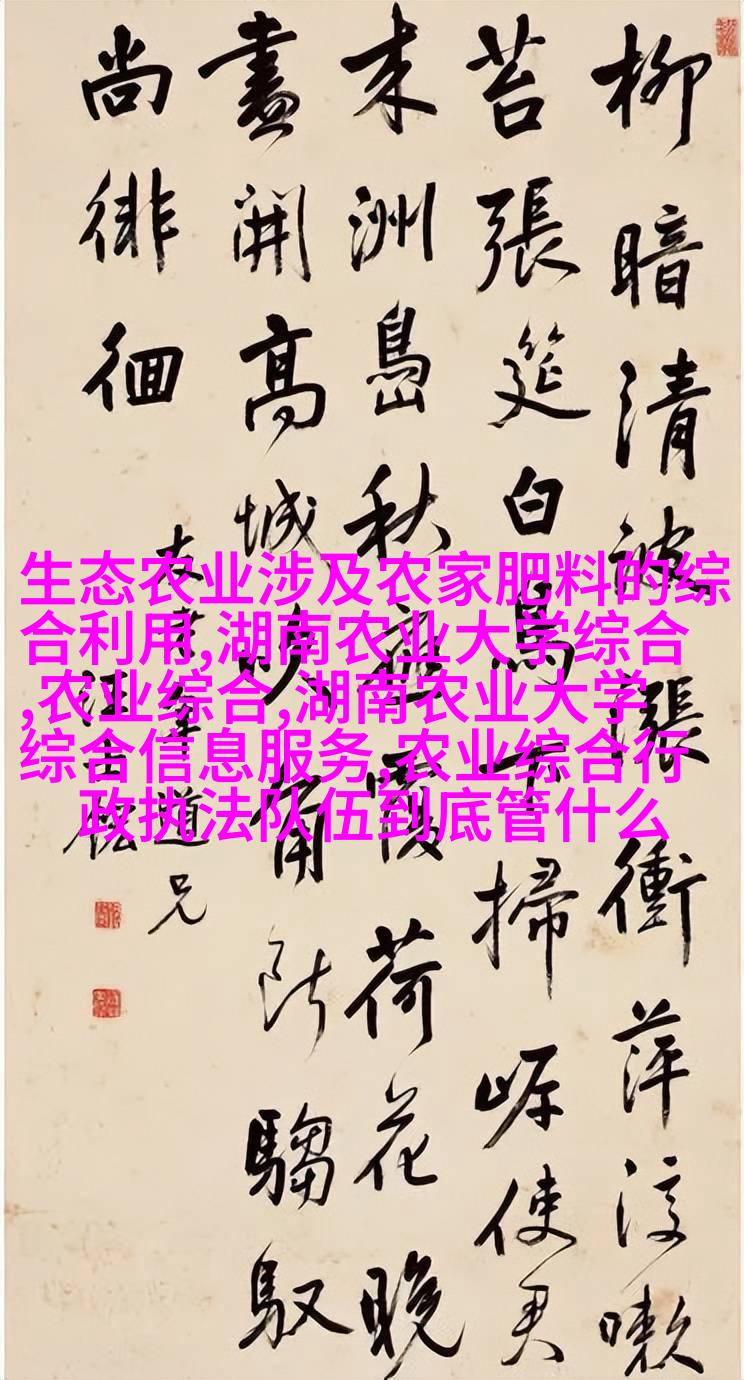 柳暗清波漲衝萍渟嗽
苔張筵白鳥下掃岸使君
来洲島秋應荷花晚
盡開高城吹角断騶馭
尚徘徊
道兄
汪士鋐
生态农业涉及农家肥料的综
合利用,湖南农业大学综合
,农业综合,湖南农业大学
综合信息服务,农业综合行
政执法队伍到底管什么